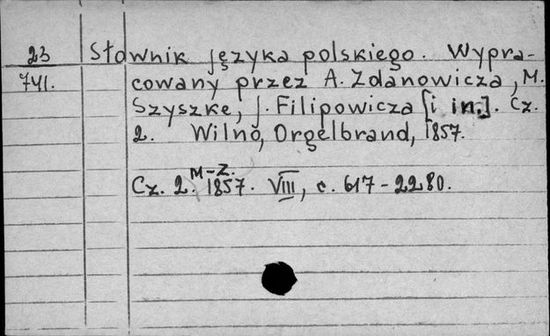 23 Słownik języka polskiego. Wypra-
741. cowany przez A. Zdanowicza, M.
Szyszkę, J. Filipowicza [i in.]. Cz.
2. Wilno, Orgelbrand, 1857.
M-Z.
Cz. 2. 1857. VIII, с. 617-2280.